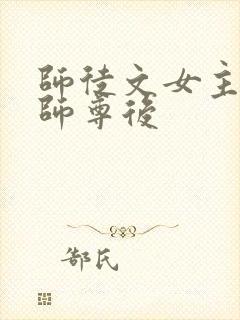 師徒文女主
師尊後
郜氏